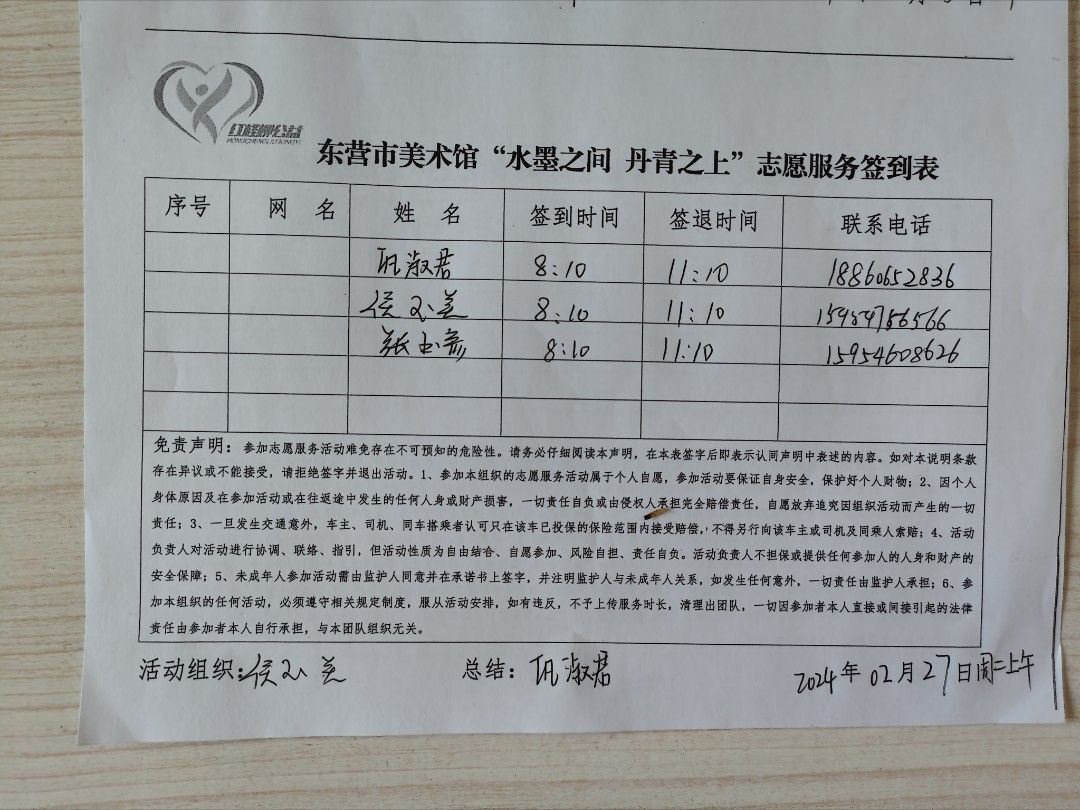 红柽柳公益
HONGCHENGLIUGONGYI
东营市美术馆“水墨之间 丹青之上”志愿服务签到表
序号 网 名 姓 名 签到时间 签退时间 联系电话
淑君 8:10 11:10 18860652836
侯 8:10 11:10 15954756566
张 8:10 11:10 15954608626
免责声明：参加志愿服务活动难免存在不可预知的危险性。请务必仔细阅读本声明，在本表签字后即表示认同声明中表述的内容。如对本说明条款
存在异议或不能接受，请拒绝签字并退出活动。1、参加本组织的志愿服务活动属于个人自愿，参加活动要保证自身安全，保护好个人财物；2、因个人
身体原因及在参加活动或在往返途中发生的任何人身或财产损害，一切责任自负或由侵权人承担完全赔偿责任，自愿放弃追究因组织活动而产生的一切
责任；3、一旦发生交通意外，车主、司机、同车搭乘者认可只在该车已投保的保险范围内接受赔偿，不得另行向该车主或司机及同乘人索赔；4、活动
负责人对活动进行协调、联络、指引，但活动性质为自由结合、自愿参加、风险自担、责任自负。活动负责人不担保或提供任何参加人的人身和财产的
安全保障；5、未成年人参加活动需由监护人同意并在承诺书上签字，并注明监护人与未成年人关系，如发生任何意外，一切责任由监护人承担；6、参
加本组织的任何活动，必须遵守相关规定制度，服从活动安排，如有违反，不予上传服务时长，清理出团队，一切因参加者本人直接或间接引起的法律
责任由参加者本人自行承担，与本团队组织无关。
活动组织：侯 总结：淑君 2024年02月27日周二上午